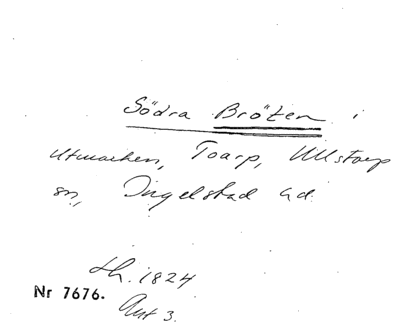 Södra Bröten i
Utmarken, Toarp, Ullstorp
sn, Ingelstad hd.
Lh. 1824
Nr 7676.
Akt 3.